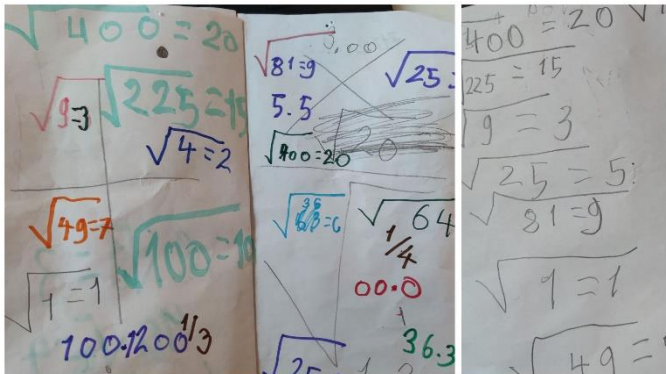 √400=20
√225=15
√9=3
√4=2
√49=7
√100=10
√1=1
100.1200 1/3
3,00
√81=9
√25=
5.5
√400=20
20
√36=6
√64
1/4
00.0
36.3
√25
√400=20
√225=15
√9=3
√25=5
√81=9
√1=1
√49=